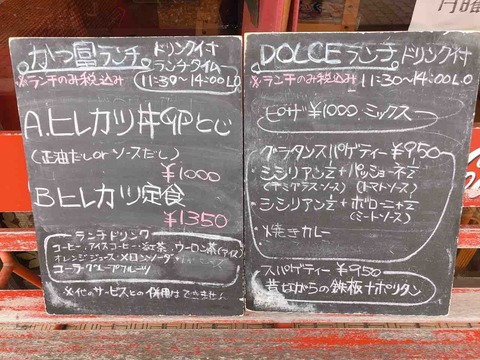 かつ冨ランチ ドリンク付
ランチタイム
※ランチのみ税込み 11:30〜14:00 L.O
A.ヒレカツ丼 or とじ
(正油だし or ソースだし)
¥1000
B ヒレカツ定食
¥1350
ランチドリンク
コーヒー・アイスコーヒー・紅茶・ウーロン茶(アイス)
オレンジジュース・メロンソーダ
コーラ・グレープフルーツ
※他のサービスとの併用はできません
DOLCEランチ ドリンク付
※ランチのみ税込み 11:30〜14:00 L.O
ピザ ¥1000.ミックス
グラタンスパゲティー ¥950
・シシリアン½+パッショーネ½
(デミグラスソース)(トマトソース)
・シシリアン½+ボローニャ½
(ミートソース)
・焼きカレー
スパゲティー ¥950
昔ながらの鉄板ナポリタン
月曜